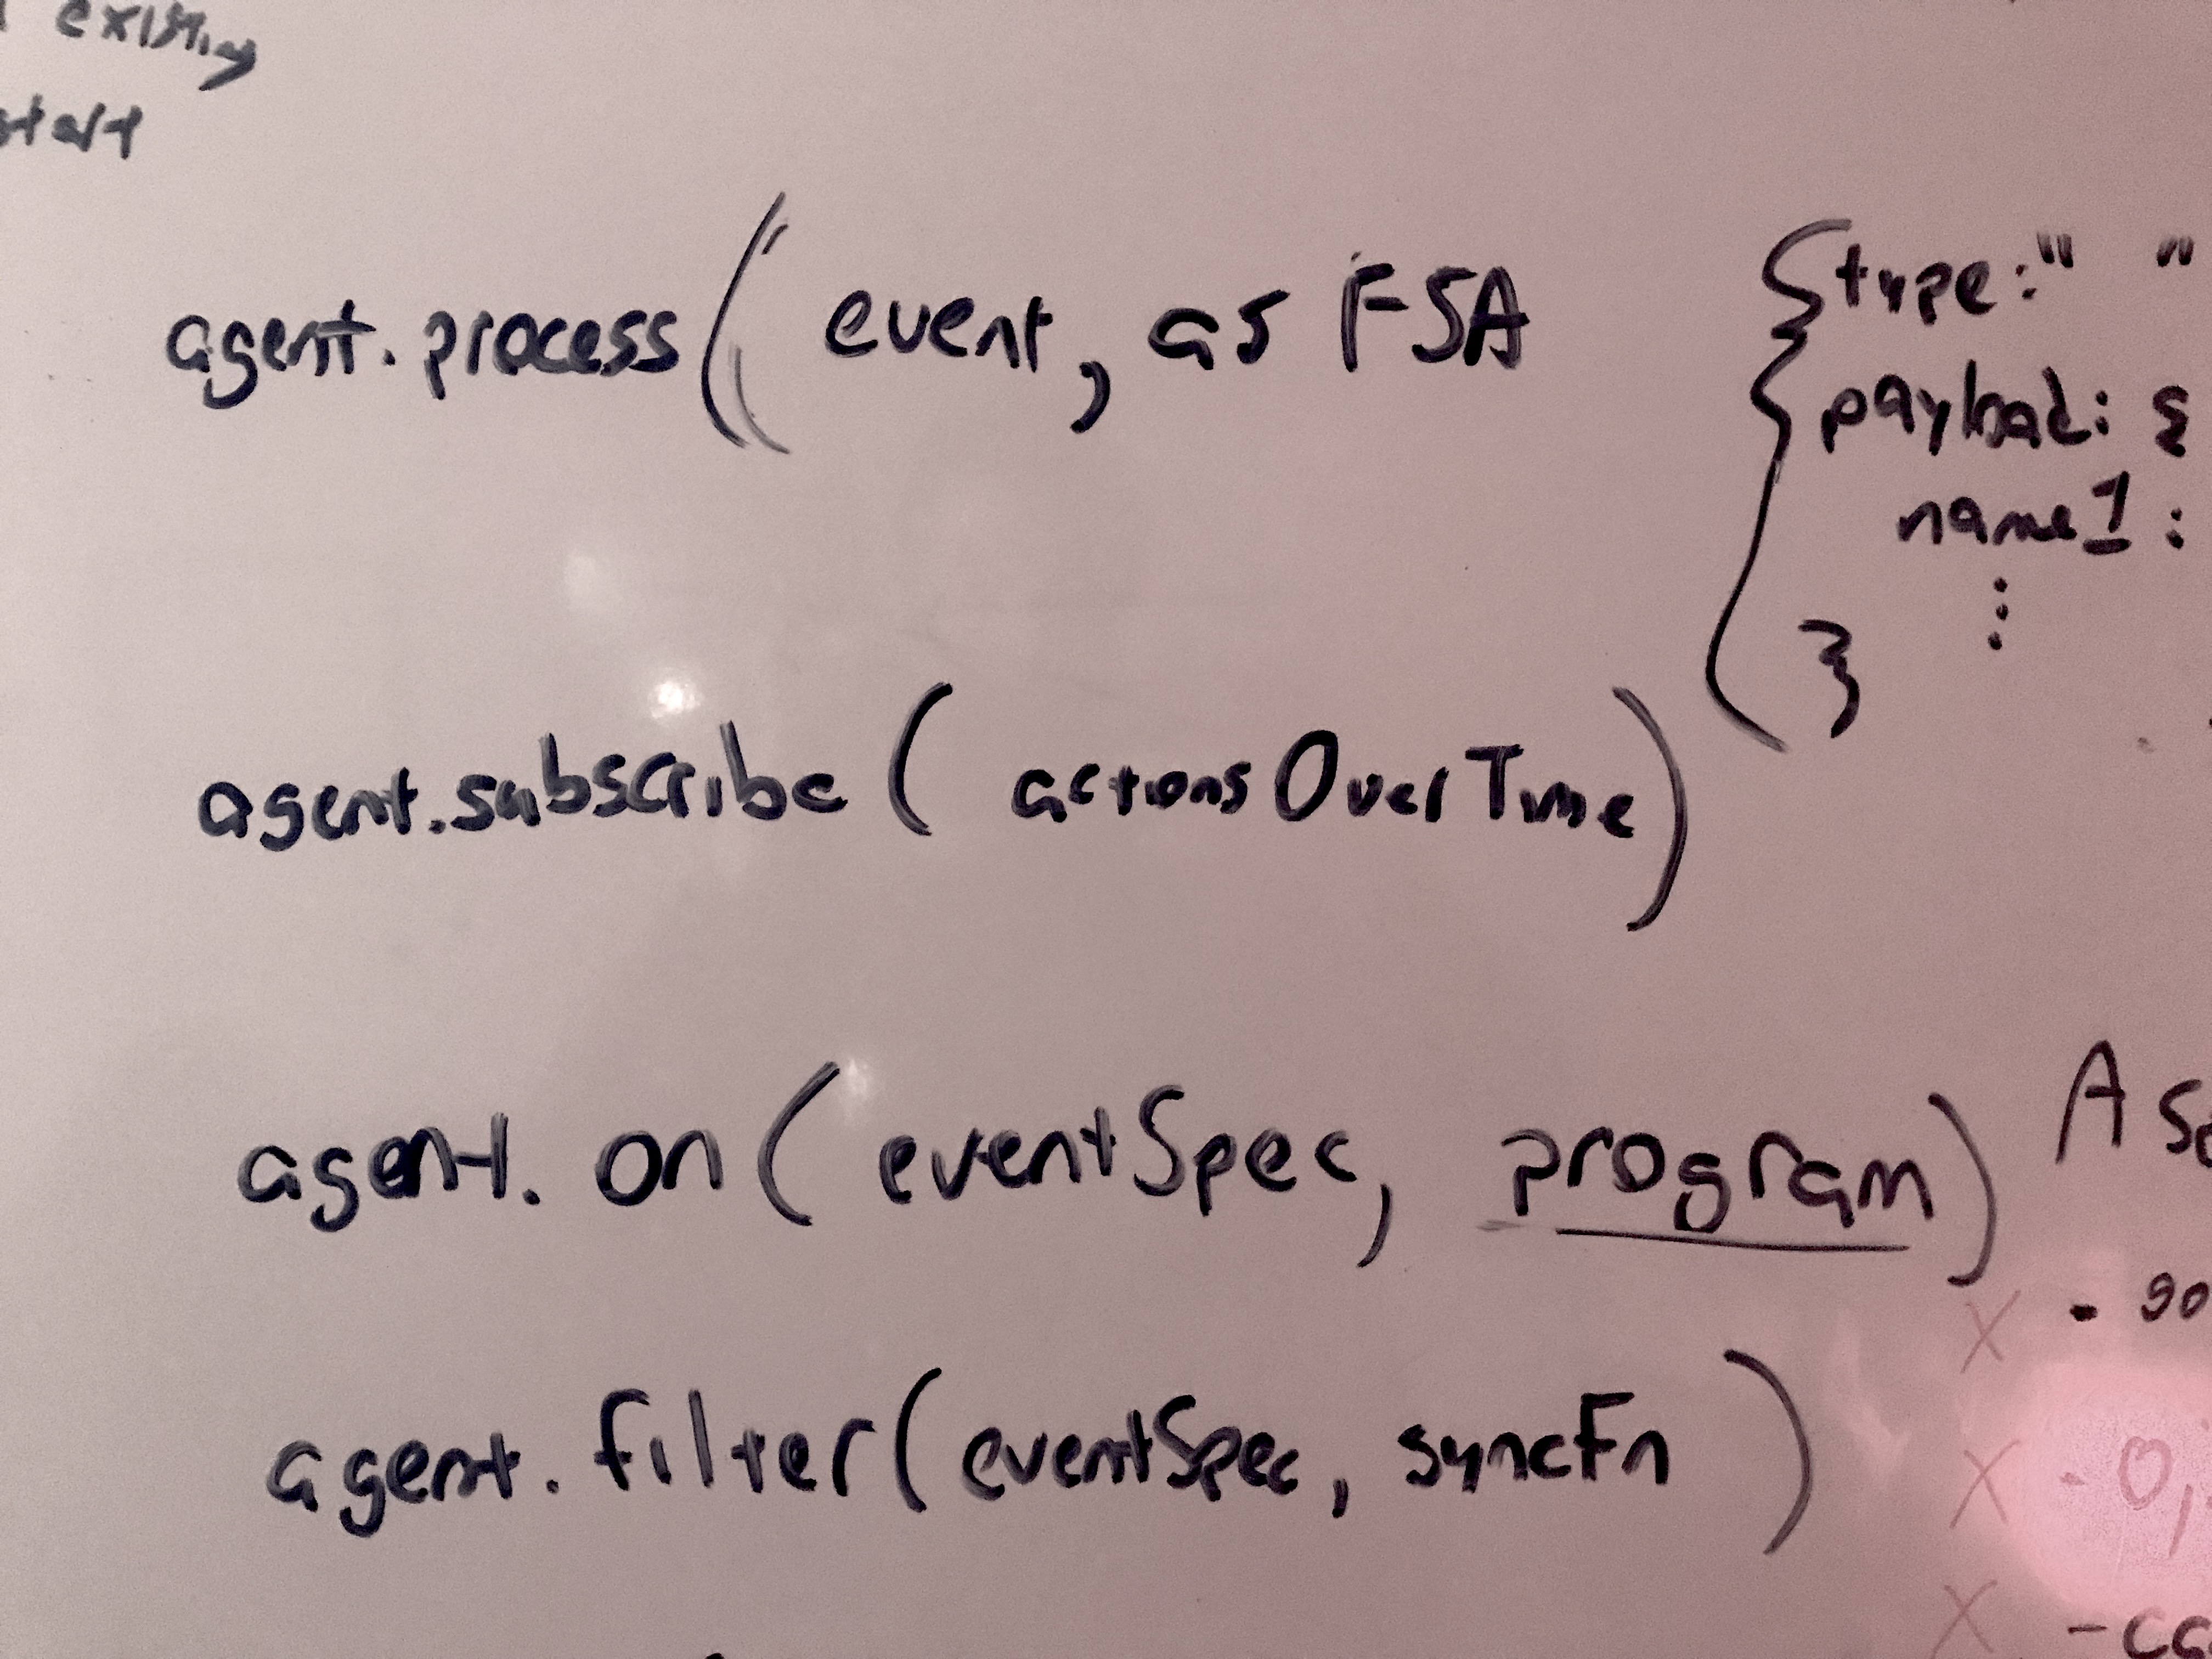 existing
start
agent.process( event, as FSA
{type: " "
payload: {
name1:
:
}
agent.subscribe( actionsOverTime)
agent.on(eventSpec, program)
agent.filter(eventSpec, syncFn)